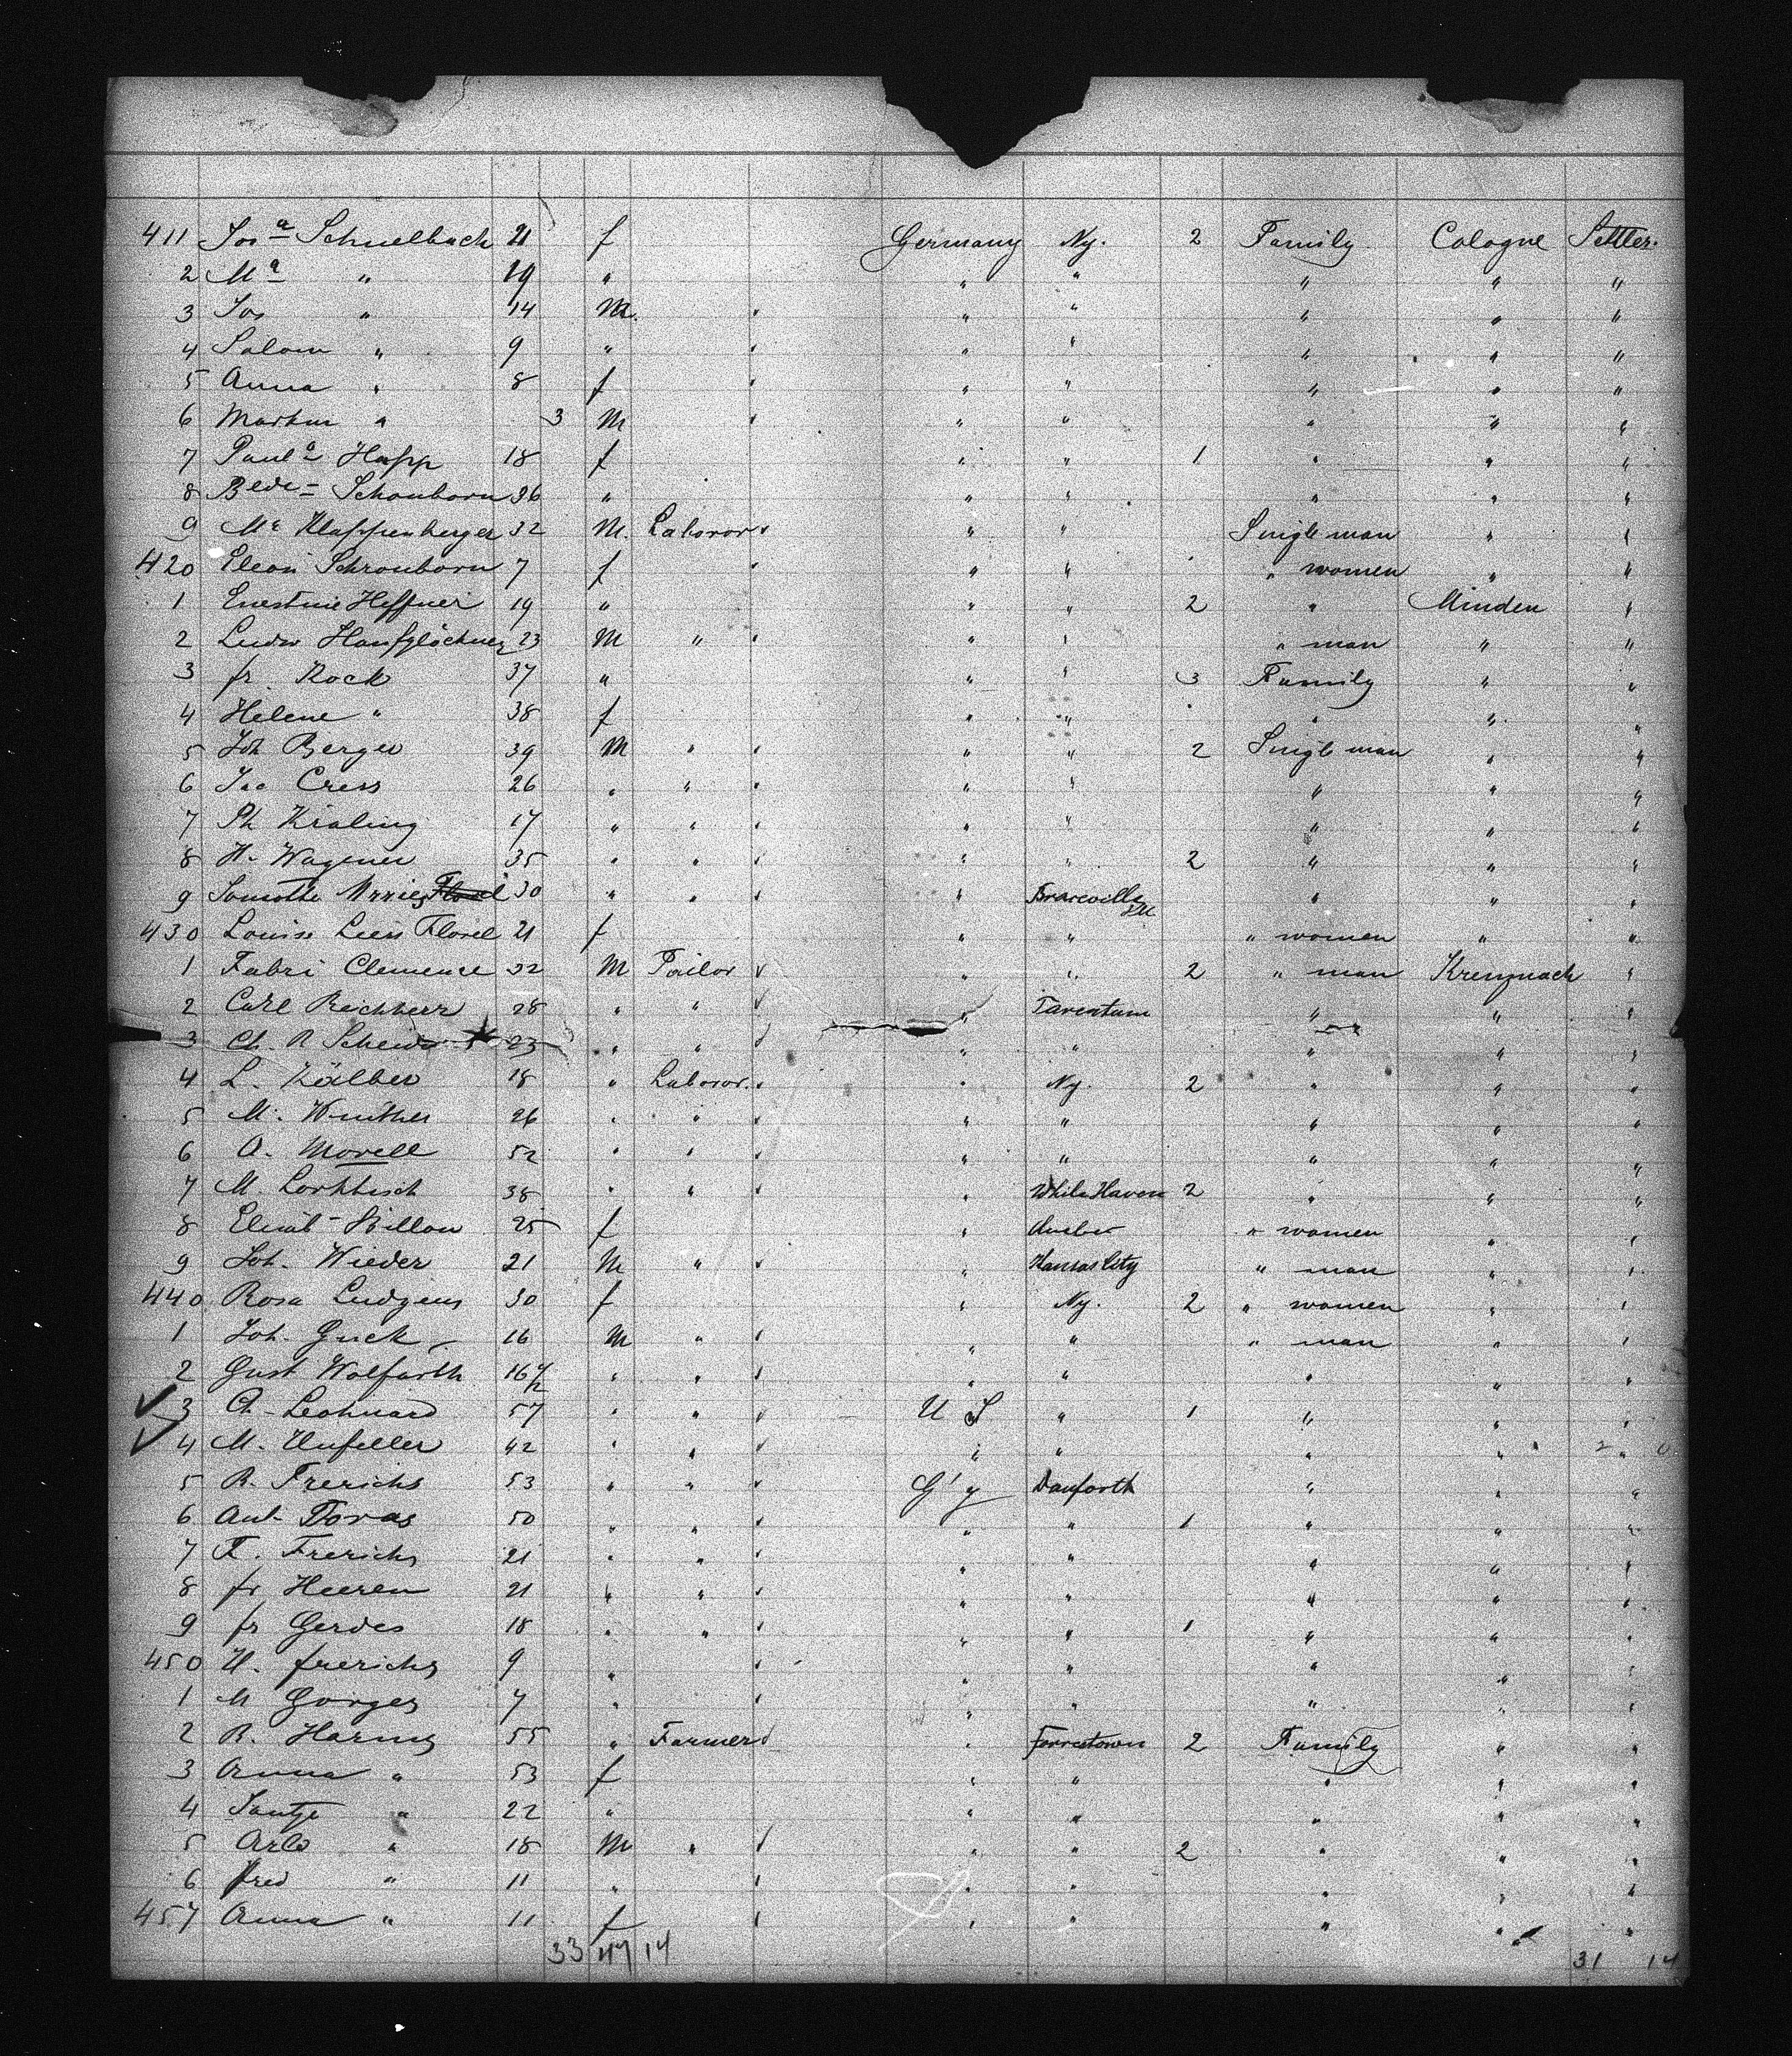 411 Josª Schnellbach 21 f Germany Ny. 2 Family Cologne Settler.
2 Mª " 19 " " " " " "
3 Jos " 14 M. " " " " " "
4 Salom " 9 " " " " " " "
5 Anna " 8 f " " " " " "
6 Martin " 3 M " " " " " "
7 Paulª Happ 18 f " " 1 " " "
8 Schonborn 36 " " " " " "
9 Mc Klappenberger 32 M. Laboror " " " Single man " "
420 Schronborn 7 f " " " " women " "
1 Ernestine Heffner 19 " " " 2 " Minden "
2 Ludw 23 M " " " " " man " "
3 fr. Rock 37 " " " 3 Family " "
4 Helene " 38 f " " " " "
5 Joh Berger 39 M " " " " 2 Single man " "
6 Jac Cress 26 " " " " " " " "
7 Ph Kraling 17 " " " " " " " "
8 H. Wagener 35 " " " " " 2 " " "
9 30 " " " " Braceville Ill " " "
430 Louise Florel 21 f " " " women " "
1 Fabri Clemence 32 M Tailor " " 2 " man Kreuznach "
2 Carl Reichherr 28 " " " Tarentum " " "
3 Ch. R 23 " " " " " " "
4 L. Kälber 18 " Laboror. " " Ny. 2 " " "
5 M. 26 " " " " " " " "
6 A. Morell 52 " " " " " " " "
7 M 38 " " " " White Haven 2 " " "
8 Billon 25 f " " women " "
9 Joh. Wieder 21 M " " " Kansas City " man " "
440 Rosa Ludgens 30 f " Ny. 2 " women " "
1 Joh. Guck 16 M " " " " " man " "
2 Gust Wolfarth 16 1/2 " " " " " " " "
3 Ch. Leohnard 57 " " " U S " 1 " " "
4 M. 42 " " " " " " " "
5 R. Frerichs 53 " " " G'y Danforth " " "
6 Ant. 50 " " " " " 1 " " "
7 F. Frerichs 21 " " " " " " " "
8 fr Heeren 21 " " " " " " " "
9 fr Gerdes 18 " " " " " 1 " " "
450 H. frerichs 9 " " " " " " "
1 M Gorges 7 " " " " " " "
2 R. Harms 55 " Farmer " Forrestown 2 Family " "
3 Anna " 53 f " " " " "
4 Tantje " 22 " " " " " "
5 " 18 M " " " " 2 " " "
6 Fred " 11 " " " " " " "
457 Anna " 11 f " " " " " "
33 47 14 31 14